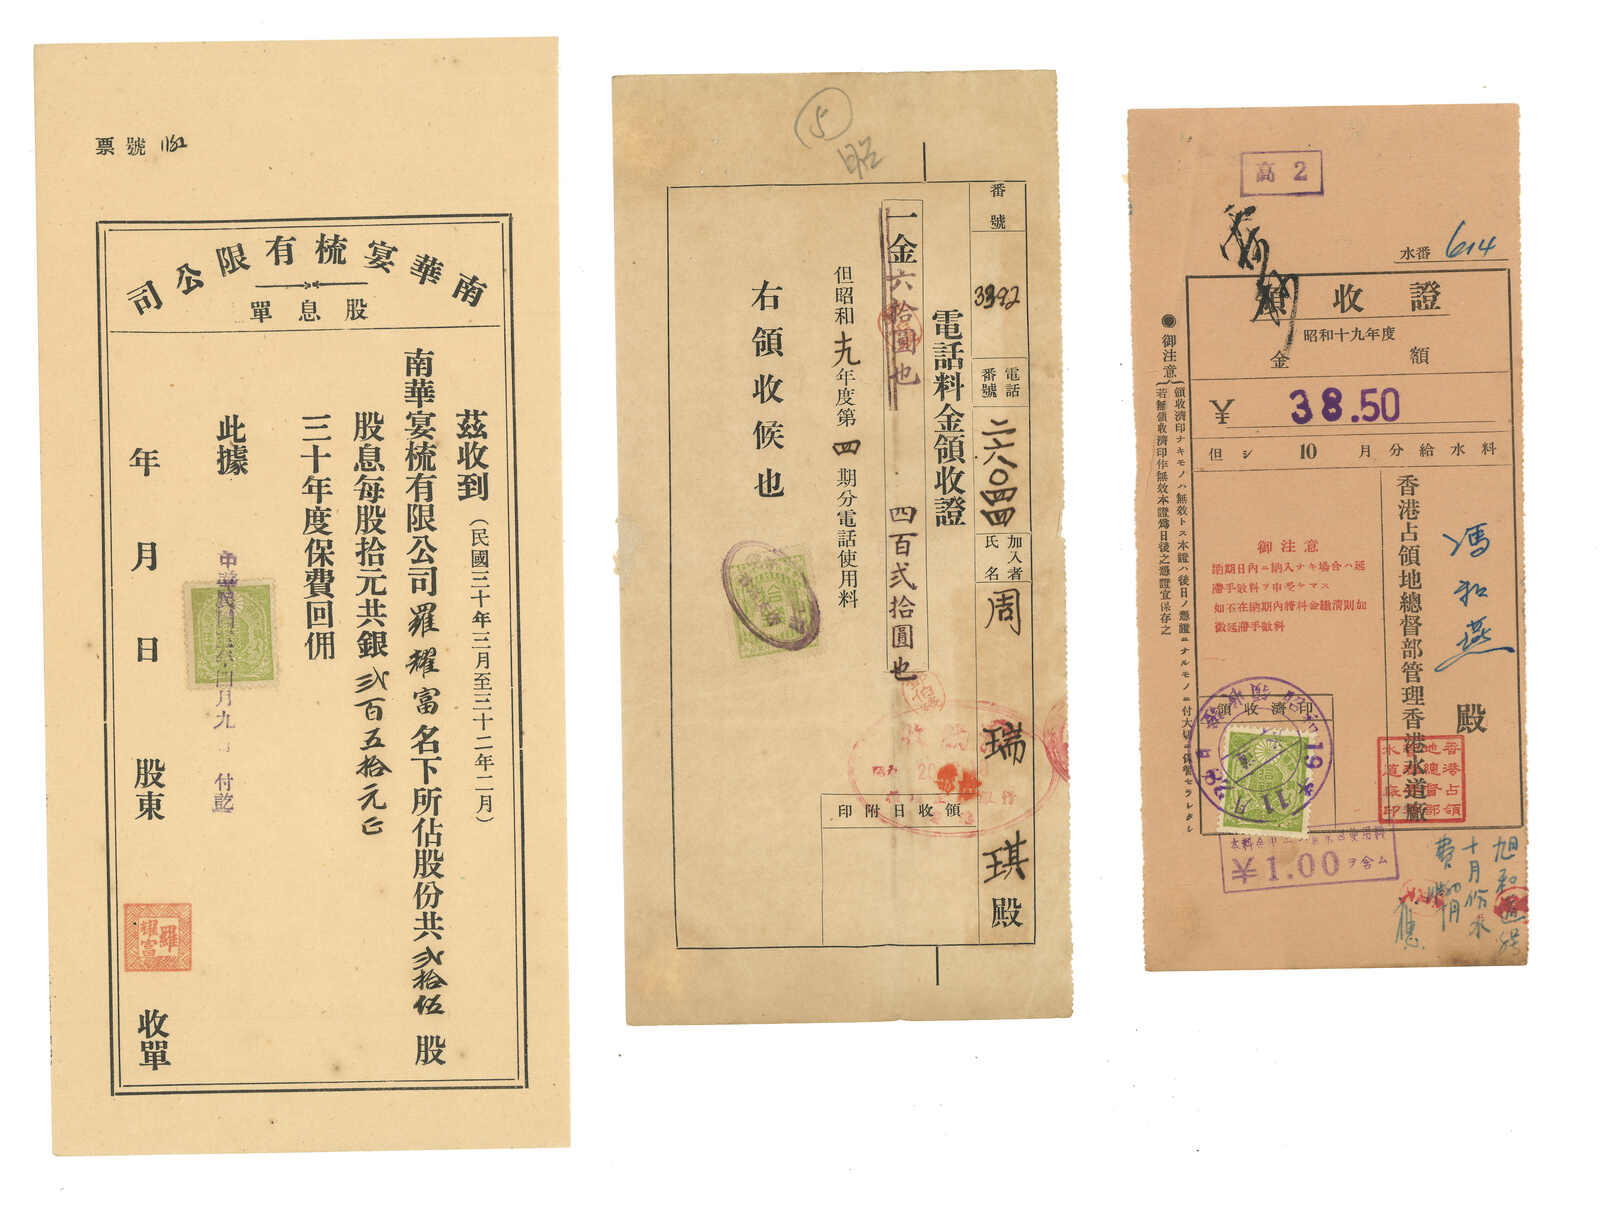 票號
南華宴梳有限公司
股息單
茲收到(民國三十年三月至三十二年二月)
南華宴梳有限公司羅耀富名下所佔股份共弍拾伍股
股息每股拾元共銀弍百五拾元正
三十年度保費回佣
此據
年月日 股東 收單
羅耀富
5
昭
番號 3392 電話番號 二六〇四四 加入者氏名 周瑞琪殿
電話料金領收證
一金六拾圓也 四百弍拾圓也
但昭和十九年度第四期分電話使用料
右領收候也
領收日附印
高 2
水番 614
領收證
昭和十九年度
金額
¥ 38.50
但シ 10 月分給水料
馮和燕殿
香港占領地總督部管理香港水道廠
香港占領地總督部
水道廠印
御注意
納期日內ニ納入ナキ場合ハ延
滯手數料ヲ申受ケマス
如不在納期內將料金繳清則加
徵延滯手數料
領收濟印
19
11
¥1.00ヲ含ム
●御注意
領收濟印ナキモノハ無效トス本證ハ後日ノ憑證ニナルモノニ付大切ニ保管セラレタシ
若無領收濟印作無效本證爲日後之憑證宜保存之
十月份水
費